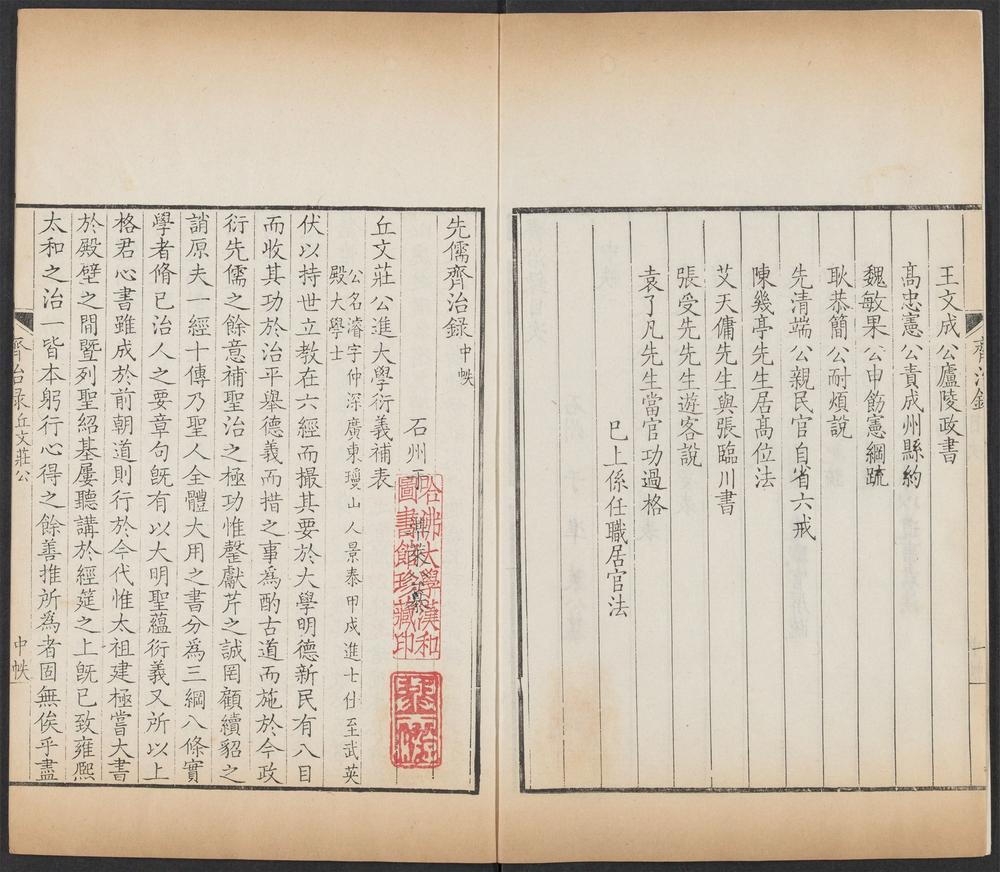 王文成公廬陵政書
高忠憲公責成州縣約
魏敏果公申飭憲綱疏
耿恭簡公耐煩說
先清端公親民官自省六戒
陳幾亭先生居高位法
艾天傭先生與張臨川書
張受先先生遊客說
袁了凡先生當官功過格
已上係任職居官法
齊治錄
先儒齊治錄 中帙
石州
哈佛大學漢和圖書館珍藏印
丘文莊公進大學衍義補表
公名濬字仲深廣東瓊山人景泰甲戌進士仕至武英
殿大學士
伏以持世立教在六經而撮其要於大學明德新民有八目
而收其功於治平舉德義而措之事為酌古道而施於今政
衍先儒之餘意補聖治之極功惟罄獻芹之誠罔顧續貂之
誚原夫一經十傳乃聖人全體大用之書分為三綱八條實
學者脩已治人之要章句旣有以大明聖蘊衍義又所以上
格君心書雖成於前朝道則行於今代惟太祖建極嘗大書
於殿壁之間暨列聖紹基屢聽講於經筵之上旣已致雍熙
太和之治一皆本躬行心得之餘善推所為者固無俟乎盡
齊治錄 丘文莊公 中帙